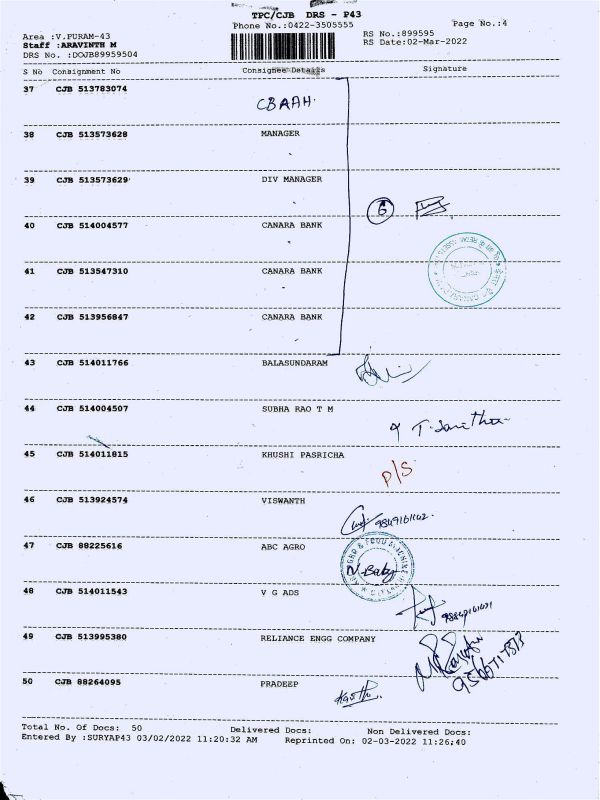 TPC/CJB DRS - P43
Phone No.:0422-3505555
Page No.:4
Area :V.PURAM-43
RS No.:899595
Staff :ARAVINTH M
RS Date:02-Mar-2022
DRS No. :DOJB89959504
S No Consignment No Consignee Details Signature
37 CJB 513783074 CBAAH.
38 CJB 513573628 MANAGER
39 CJB 513573629 DIV MANAGER
6
40 CJB 514004577 CANARA BANK
41 CJB 513547310 CANARA BANK
42 CJB 513956847 CANARA BANK
43 CJB 514011766 BALASUNDARAM
44 CJB 514004507 SUBHA RAO T M
45 CJB 514011815 KHUSHI PASRICHA
P/S
46 CJB 513924574 VISWANTH
47 CJB 88225616 ABC AGRO
N. Baby
48 CJB 514011543 V G ADS
49 CJB 513995380 RELIANCE ENGG COMPANY
50 CJB 88264095 PRADEEP
Total No. Of Docs: 50 Delivered Docs: Non Delivered Docs:
Entered By :SURYAP43 03/02/2022 11:20:32 AM Reprinted On: 02-03-2022 11:26:40